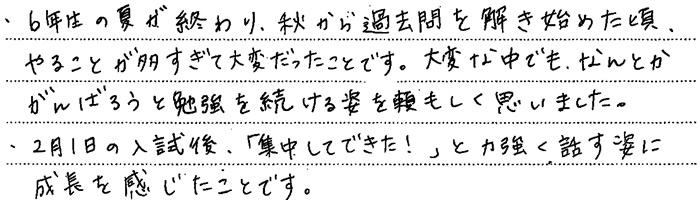 ・6年生の夏が終わり、秋から過去問を解き始めた頃、
やることが多すぎて大変だったことです。大変な中でも、なんとか
がんばろうと勉強を続ける姿を頼もしく思いました。
・2月1日の入試後、「集中してできた!」と力強く話す姿に
成長を感じたことです。